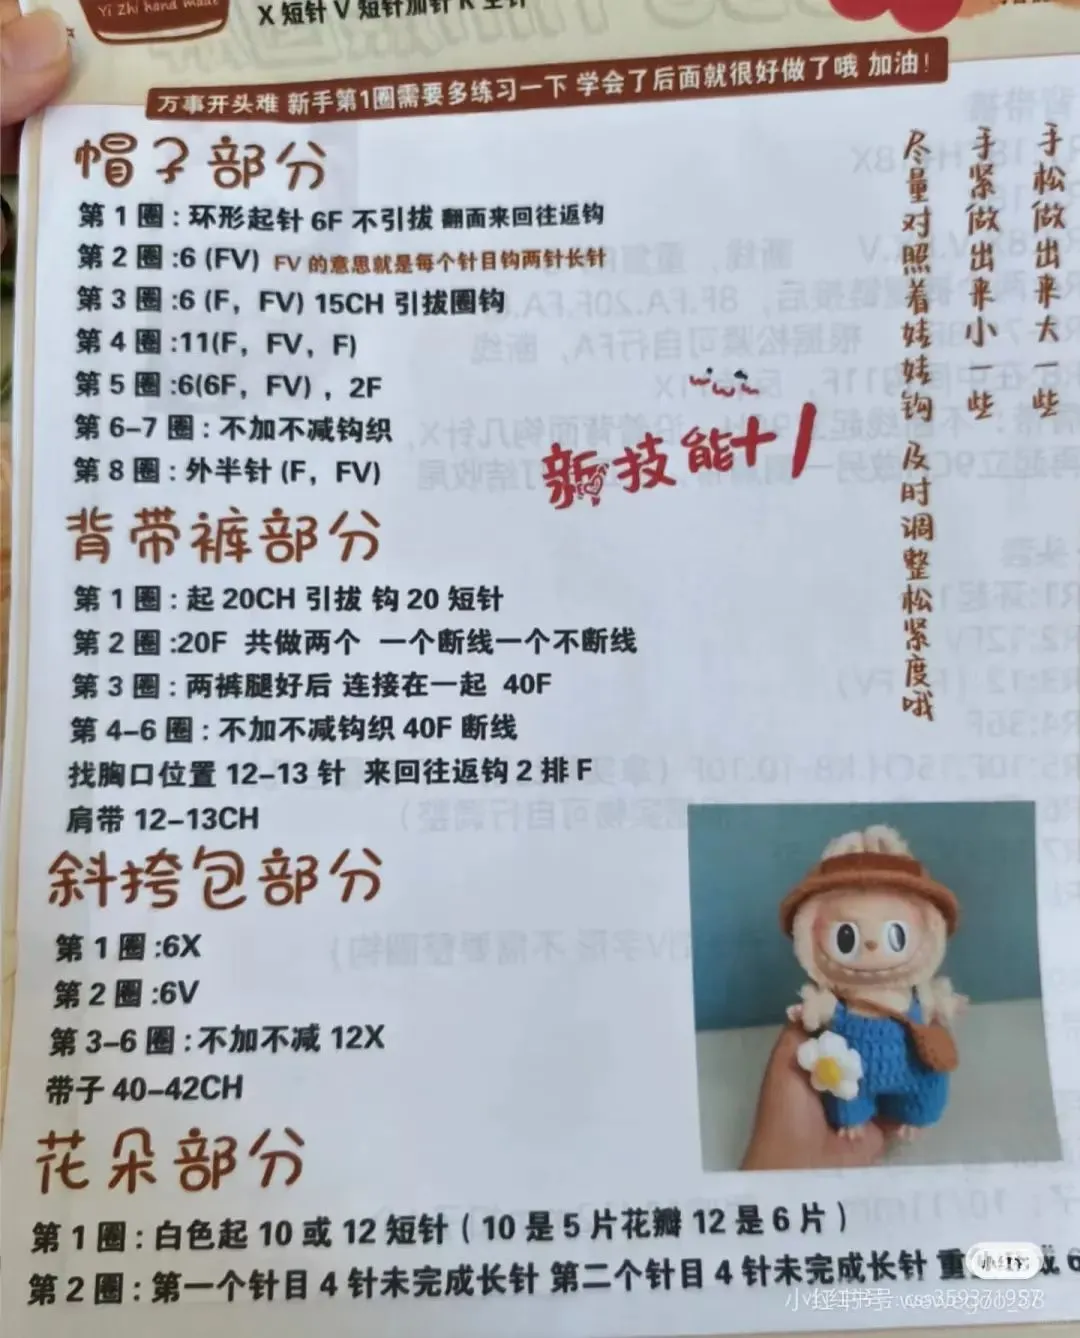 Yi zhi hand made
X 短针 V 短针加针
万事开头难 新手第1圈需要多练习一下 学会了后面就很好做了哦 加油!
手松做出来大一些
手紧做出来小一些
尽量对照着娃娃钩 及时调整松紧度哦
帽子部分
第 1 圈 : 环形起针 6F 不引拔 翻面来回往返钩
第 2 圈 :6 (FV) FV 的意思就是每个针目钩两针长针
第 3 圈 :6 (F, FV) 15CH 引拔圈钩
第 4 圈 :11(F, FV, F)
第 5 圈 :6(6F, FV) , 2F
第 6-7 圈 : 不加不减钩织
第 8 圈 : 外半针 (F, FV)
新技能+1
背带裤部分
第 1 圈 : 起 20CH 引拔 钩 20 短针
第 2 圈 :20F 共做两个 一个断线一个不断线
第 3 圈 : 两裤腿好后 连接在一起 40F
第 4-6 圈 : 不加不减钩织 40F 断线
找胸口位置 12-13 针 来回往返钩 2 排 F
肩带 12-13CH
斜挎包部分
第 1 圈 :6X
第 2 圈 :6V
第 3-6 圈 : 不加不减 12X
带子 40-42CH
花朵部分
第 1 圈 : 白色起 10 或 12 短针 ( 10 是 5 片花瓣 12 是 6 片 )
第 2 圈 : 第一个针目 4 针未完成长针 第二个针目 4 针未完成长针 重
小红书
小红书号: